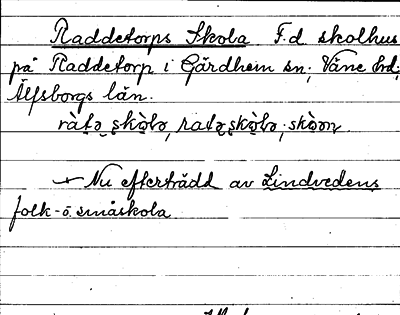 Raddetorps Skola F.d. skolhus
på Raddetorp i Gärdhem sn; Väne hd;
Älfsborgs län.
→ Nu efterträdd av Lindvedens
folk- o. småskola